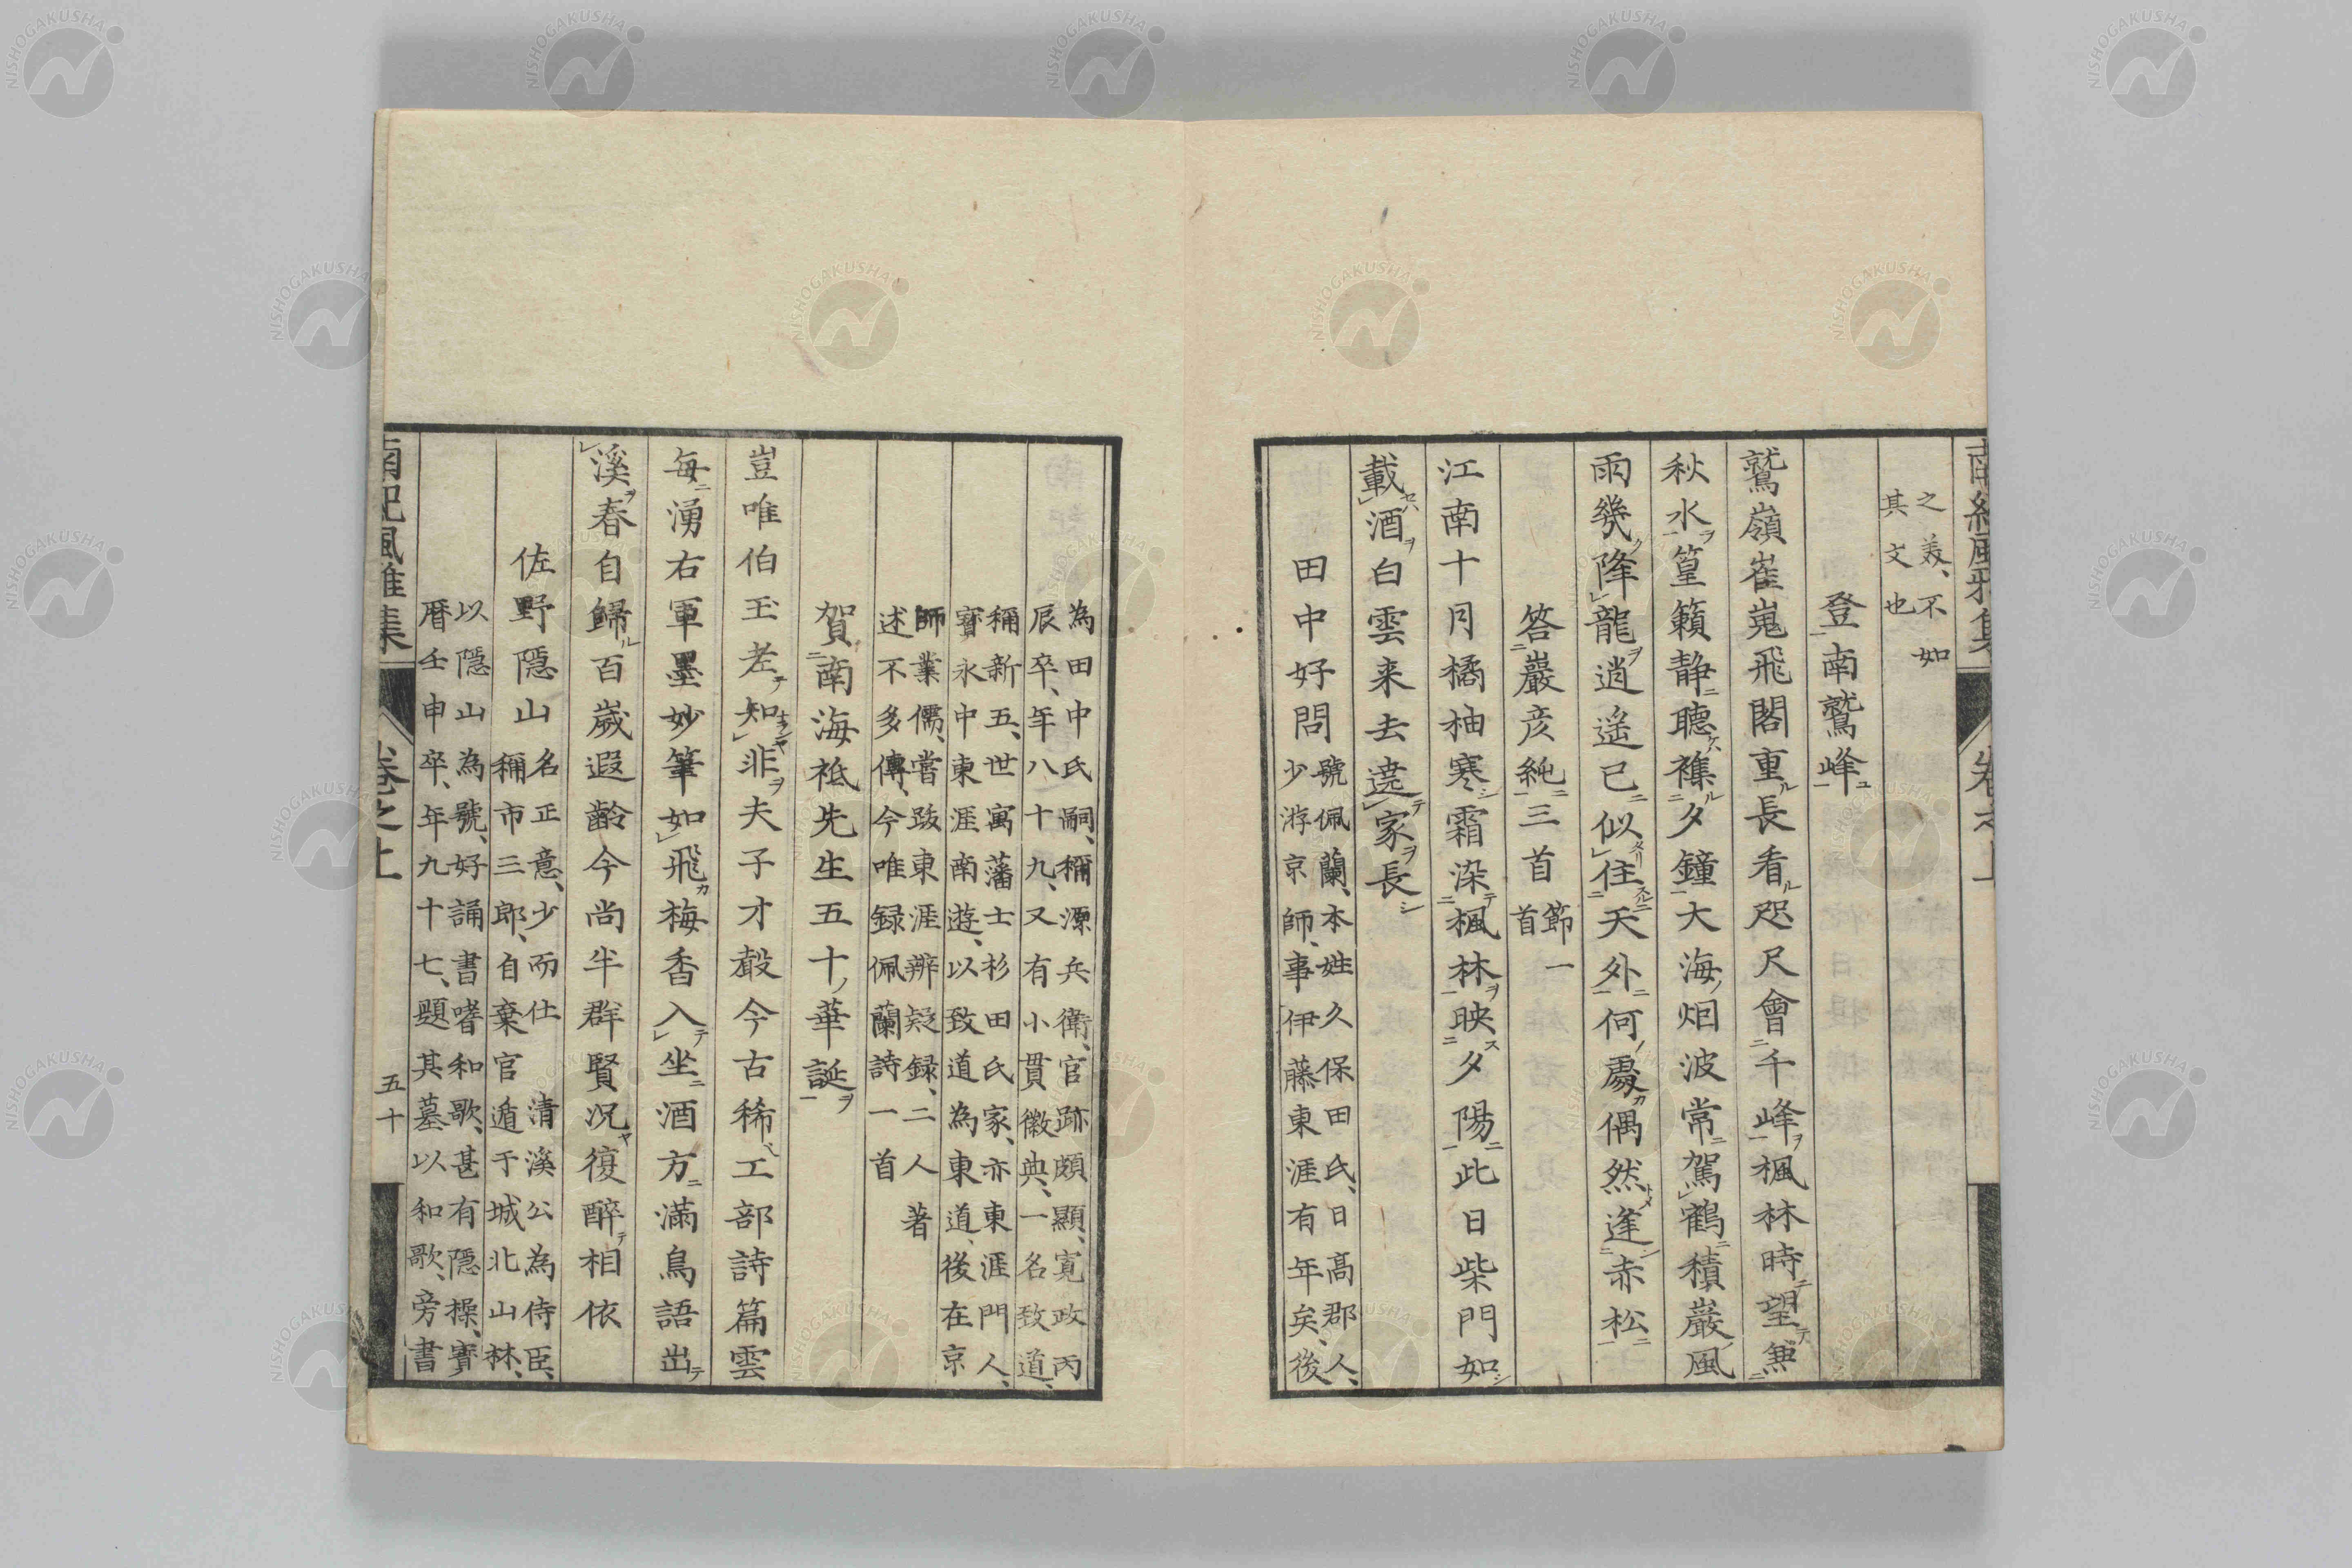 之美、不如
其文也
登南鷲峰
鷲嶺崔嵬飛閣重長看咫尺會千峰楓林時望無
秋水篁籟静聴襍夕鐘大海烟波常駕鶴積巖風
雨幾降龍逍遥已似住天外何處偶然逢赤松
答巖彦純三首節一首
江南十月橘柚寒霜染楓林映夕陽此日柴門如
載酒白雲来去遶家長
田中好問號佩蘭、本姓久保田氏、日高郡人、
少游京師、事伊藤東涯有年矣、後
為田中氏嗣、稱源兵衛、官跡頗顯、寛政丙
辰卒、年八十九、又有小貫徽典、一名致道、
稱新五、世寓藩士杉田氏家、亦東涯門人、
寳永中東涯南遊、以致道為東道、後在京
師業儒、嘗跋東涯辨疑録、二人著
述不多傳、今唯録佩蘭詩一首
賀南海祗先生五十華誕
豈唯伯玉差知非夫子才縠今古稀工部詩篇雲
毎湧右軍墨妙筆如飛梅香入坐酒方満鳥語出
溪春自歸百歳遐齢今尚半群賢況復醉相依
佐野隠山名正意、少而仕 清溪公為侍臣、
稱市三郎、自棄官遁于城北山林、
以隠山為號、好誦書嗜和歌、甚有隠操、寳
暦壬申卒、年九十七、題其墓以和歌、旁書
南紀風雅集 卷之上 五十
NISHOGAKUSHA